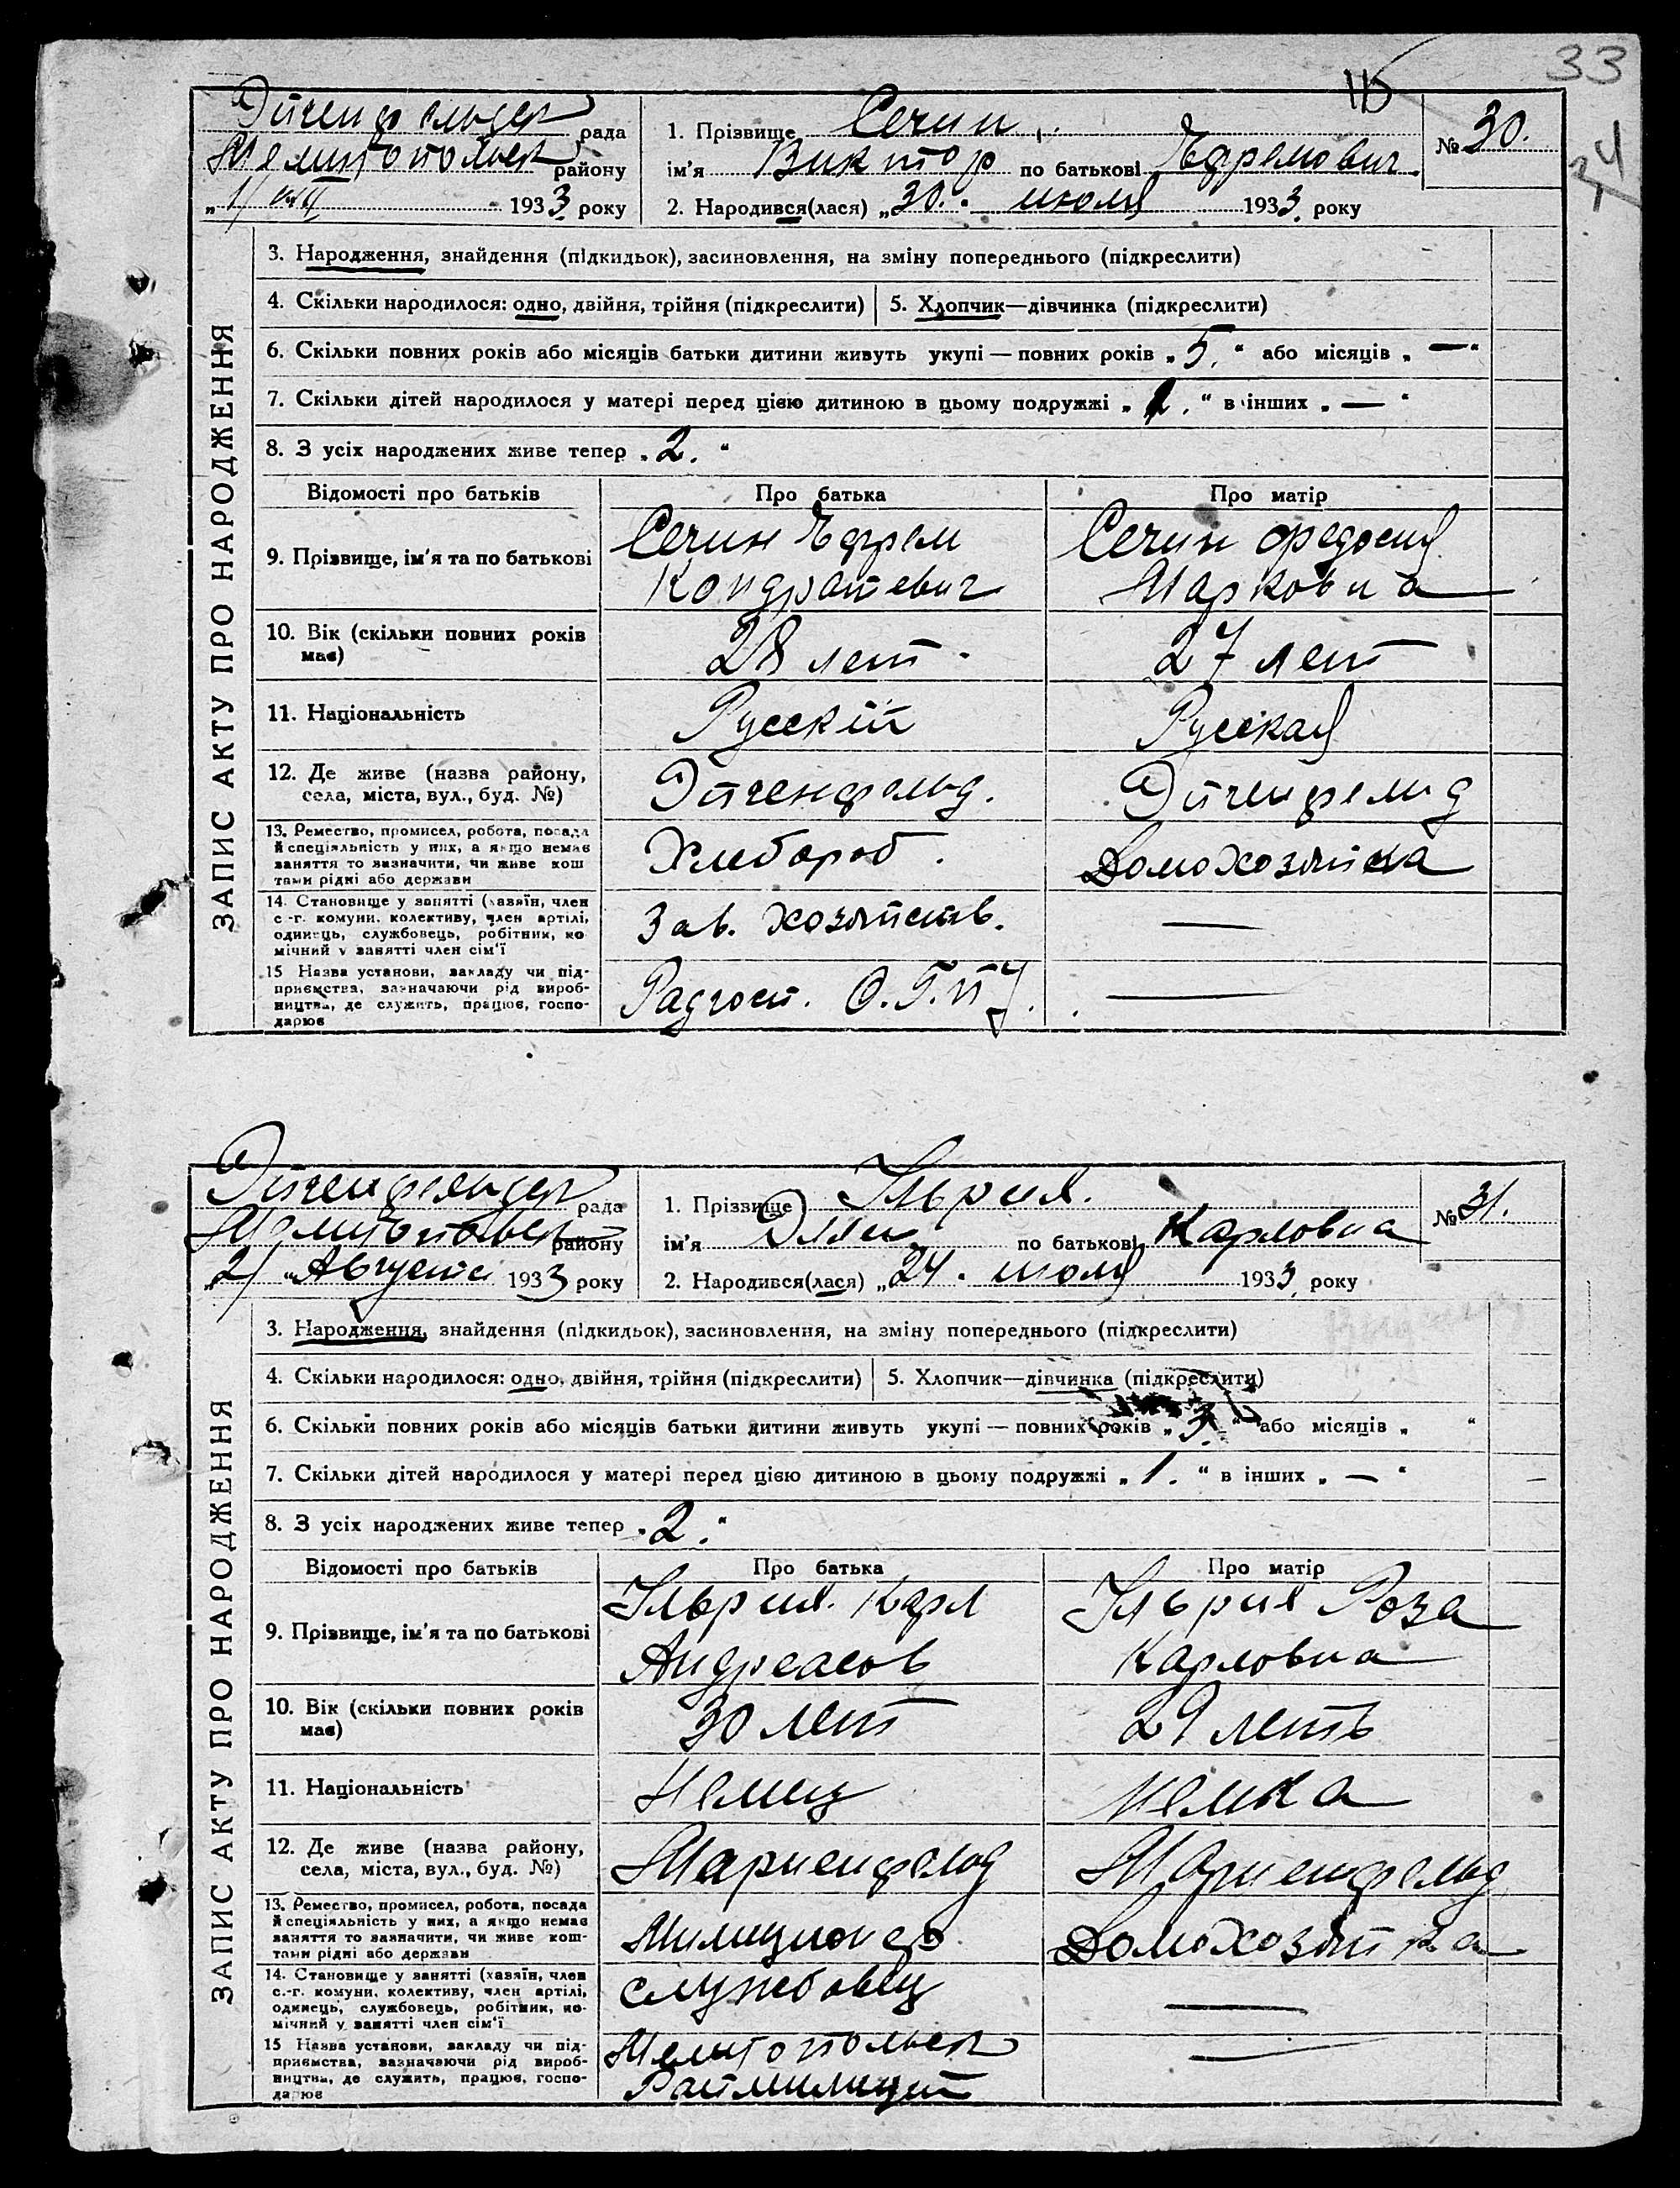 33
34
Эйгенфельдск рада
Мелитопольск району
"1/VIII 1933 року
1. Прізвище Сечин
ім'я Виктор по батькові Ефремович
2. Народився(лася) "30. июля 1933 року
№ 30.
ЗАПИС АКТУ ПРО НАРОДЖЕННЯ
3. Народження, знайдення (підкидьок), засиновлення, на зміну попереднього (підкреслити)
4. Скільки народилося: одно, двійня, трійня (підкреслити) 5. Хлопчик—дівчинка (підкреслити)
6. Скільки повних років або місяців батьки дитини живуть укупі — повних років „ 5. “ або місяців „ — “
7. Скільки дітей народилося у матері перед цією дитиною в цьому подружжі „ . “ в інших „ — “
8. З усіх народжених живе тепер „ 2. “
Відомості про батьків Про батька Про матір
9. Прізвище, ім'я та по батькові
Сечин Ефрем
Кондратевич
Сечин Федосия
Марковна
10. Вік (скільки повних років
має)
28 лет.
27 лет
11. Національність
Русскій
Русская
12. Де живе (назва району,
села, міста, вул., буд. №)
Эйгенфельд.
Эйгенфельд
13. Ремество, промисел, робота, посада
й спеціяльність у них, а якщо немає
заняття то зазначити, чи живе кош
тами рідні або держави
Хлебороб.
Домохозяйка
14. Становище у занятті (хазяїн, член
с.-г. комуни, колективу, член артілі,
одинець, службовець, робітник, по
мічний у занятті член сім'ї
Зав. хозяйств.
—
15 Назва установи, закладу чи під-
приємства, зазначаючи рід вироб-
ництва, де служить, працює, госпо-
дарює
Радгосп. О.Г.П.У.
—
Эйгенфельдск рада
Мелитопольск району
"2/ Августа 1933 року
1. Прізвище Ульрих.
ім'я Элли по батькові Карловна
2. Народився(лася) „24. июля 1933 року
№ 31.
ЗАПИС АКТУ ПРО НАРОДЖЕННЯ
3. Народження, знайдення (підкидьок), засиновлення, на зміну попереднього (підкреслити)
4. Скільки народилося: одно, двійня, трійня (підкреслити) 5. Хлопчик—дівчинка (підкреслити)
6. Скільки повних років або місяців батьки дитини живуть укупі — повних років „ 3. “ або місяців „ “
7. Скільки дітей народилося у матері перед цією дитиною в цьому подружжі „ 1. “ в інших „ — “
8. З усіх народжених живе тепер „ 2. “
Відомості про батьків Про батька Про матір
9. Прізвище, ім'я та по батькові
Ульрих Карл
Андреасов
Ульрих Роза
Карловна
10. Вік (скільки повних років
має)
30 лет
29 леть
11. Національність
Немец
немка
12. Де живе (назва району,
села, міста, вул., буд. №)
Мариенфельд
Мариенфельд
13. Ремество, промисел, робота, посада
й спеціяльність у них, а якщо немає
заняття то зазначити, чи живе кош-
тами рідні або держави
Милиционер
Домохозяйка
14. Становище у занятті (хазяїн, член
с.-г. комуни, колективу, член артілі,
одинець, службовець, робітник, по-
мічний у занятті член сім'ї
службовец
—
15 Назва установи, закладу чи під-
приємства, зазначаючи рід вироб-
ництва, де служить, працює, госпо-
дарює
Мелитопольск
Раймилиций
—